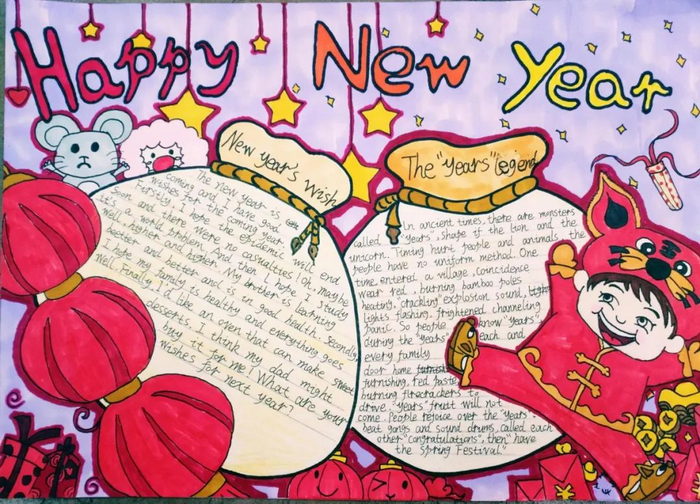 Happy New Year
New year's Wish
The New year is
coming and I have good
wishes for the coming year.
Firstly, I hope the epidemic will end
Soon and there were no casualties. Oh, maybe
It's a world problem. And then I hope I study
well, higher and higher. My brother is learning
better and better and is in good health. Secondly,
I hope my family is healthy and everything goes
Well. Finally, I like an oven that can make sweet
desserts. I think my dad might
buy it for me! What are your
wishes for next year?
The "years" legend
In ancient times, there are monsters
called "Years", shape if the lion and the
unicorn. Timing hurt people and animals, the
people have no uniform method. One
time, entered a village, coincidence
wear red, burning bamboo poles
heating, "crackling" explosion sound,
lights fashing, frightened channeling
panic. So people know "years",
during the "Years" each and
every family
door home
furnishing, red paste,
burning firecrackers to
drive. "Years" fruit will not
come. People rejoice over the "Years".
beat gongs and sound drums, called each
other "congratulations", then "have
the Spring Festival."